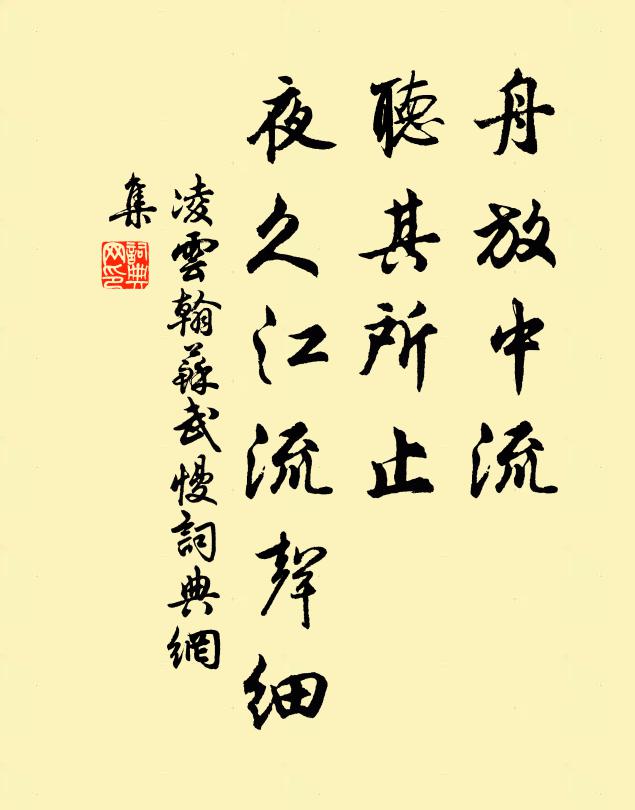 舟放中流
聽其所止
夜久江流聲細
凌雲翰蘇武慢詞典網
集
詞典
网印